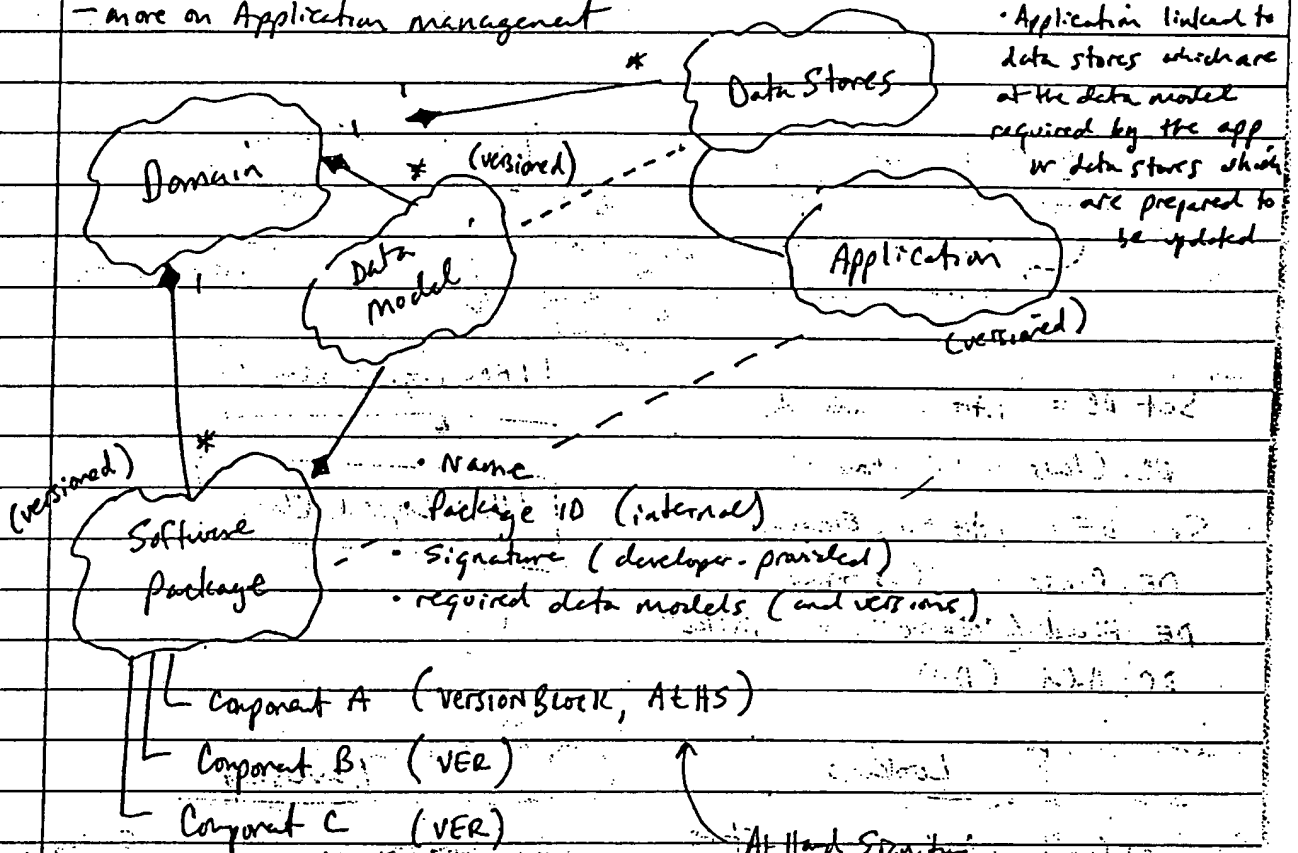 - more on Application management
* Data Stores
• Application linked to
data stores which are
at the data model
required by the app
or data stores which
are prepared to
be updated
1
Domain
1
*
(versioned)
Data
Model
Application
(versioned)
1
*
(versioned)
Software
Package
• Name
• Package ID (internal)
• Signature (developer-provided)
• required data models (and versions)
Component A (VERSIONBLOCK, AtHS)
Component B (VER)
Component C (VER)
At Hand